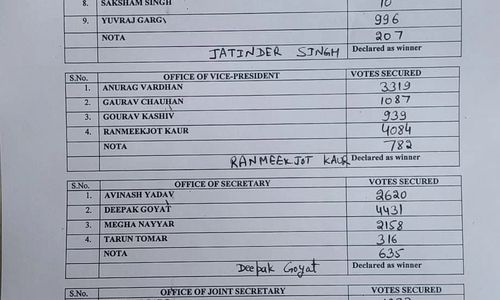 8. SAKSHAM SINGH 10
9. YUVRAJ GARG 996
NOTA 207
JATINDER SINGH Declared as winner
S.No. OFFICE OF VICE-PRESIDENT VOTES SECURED
1. ANURAG VARDHAN 3319
2. GAURAV CHAUHAN 1087
3. GOURAV KASHIV 939
4. RANMEEKJOT KAUR 4084
NOTA 782
RANMEEKJOT KAUR Declared as winner
S.No. OFFICE OF SECRETARY VOTES SECURED
1. AVINASH YADAV 2620
2. DEEPAK GOYAT 4431
3. MEGHA NAYYAR 2158
4. TARUN TOMAR 316
NOTA 635
Deepak Goyat Declared as winner
S.No. OFFICE OF JOINT SECRETARY VOTES SECURED